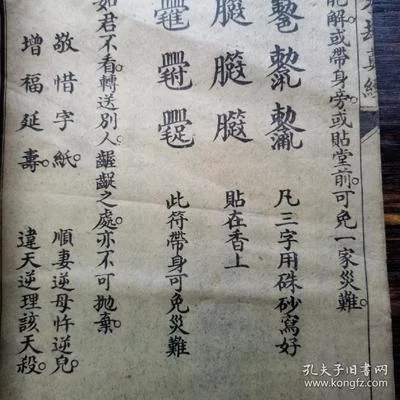 能解或帶身旁或貼堂前可免一家災難。
凡三字用硃砂寫好
貼在香上
此符帶身可免災難
如君不看。轉送別人。齷齪之處。亦不可拋棄。
敬惜字紙。
順妻逆母忤逆兒。
增福延壽。
違天逆理該天殺。
孔夫子旧书网
www.kongfz.com